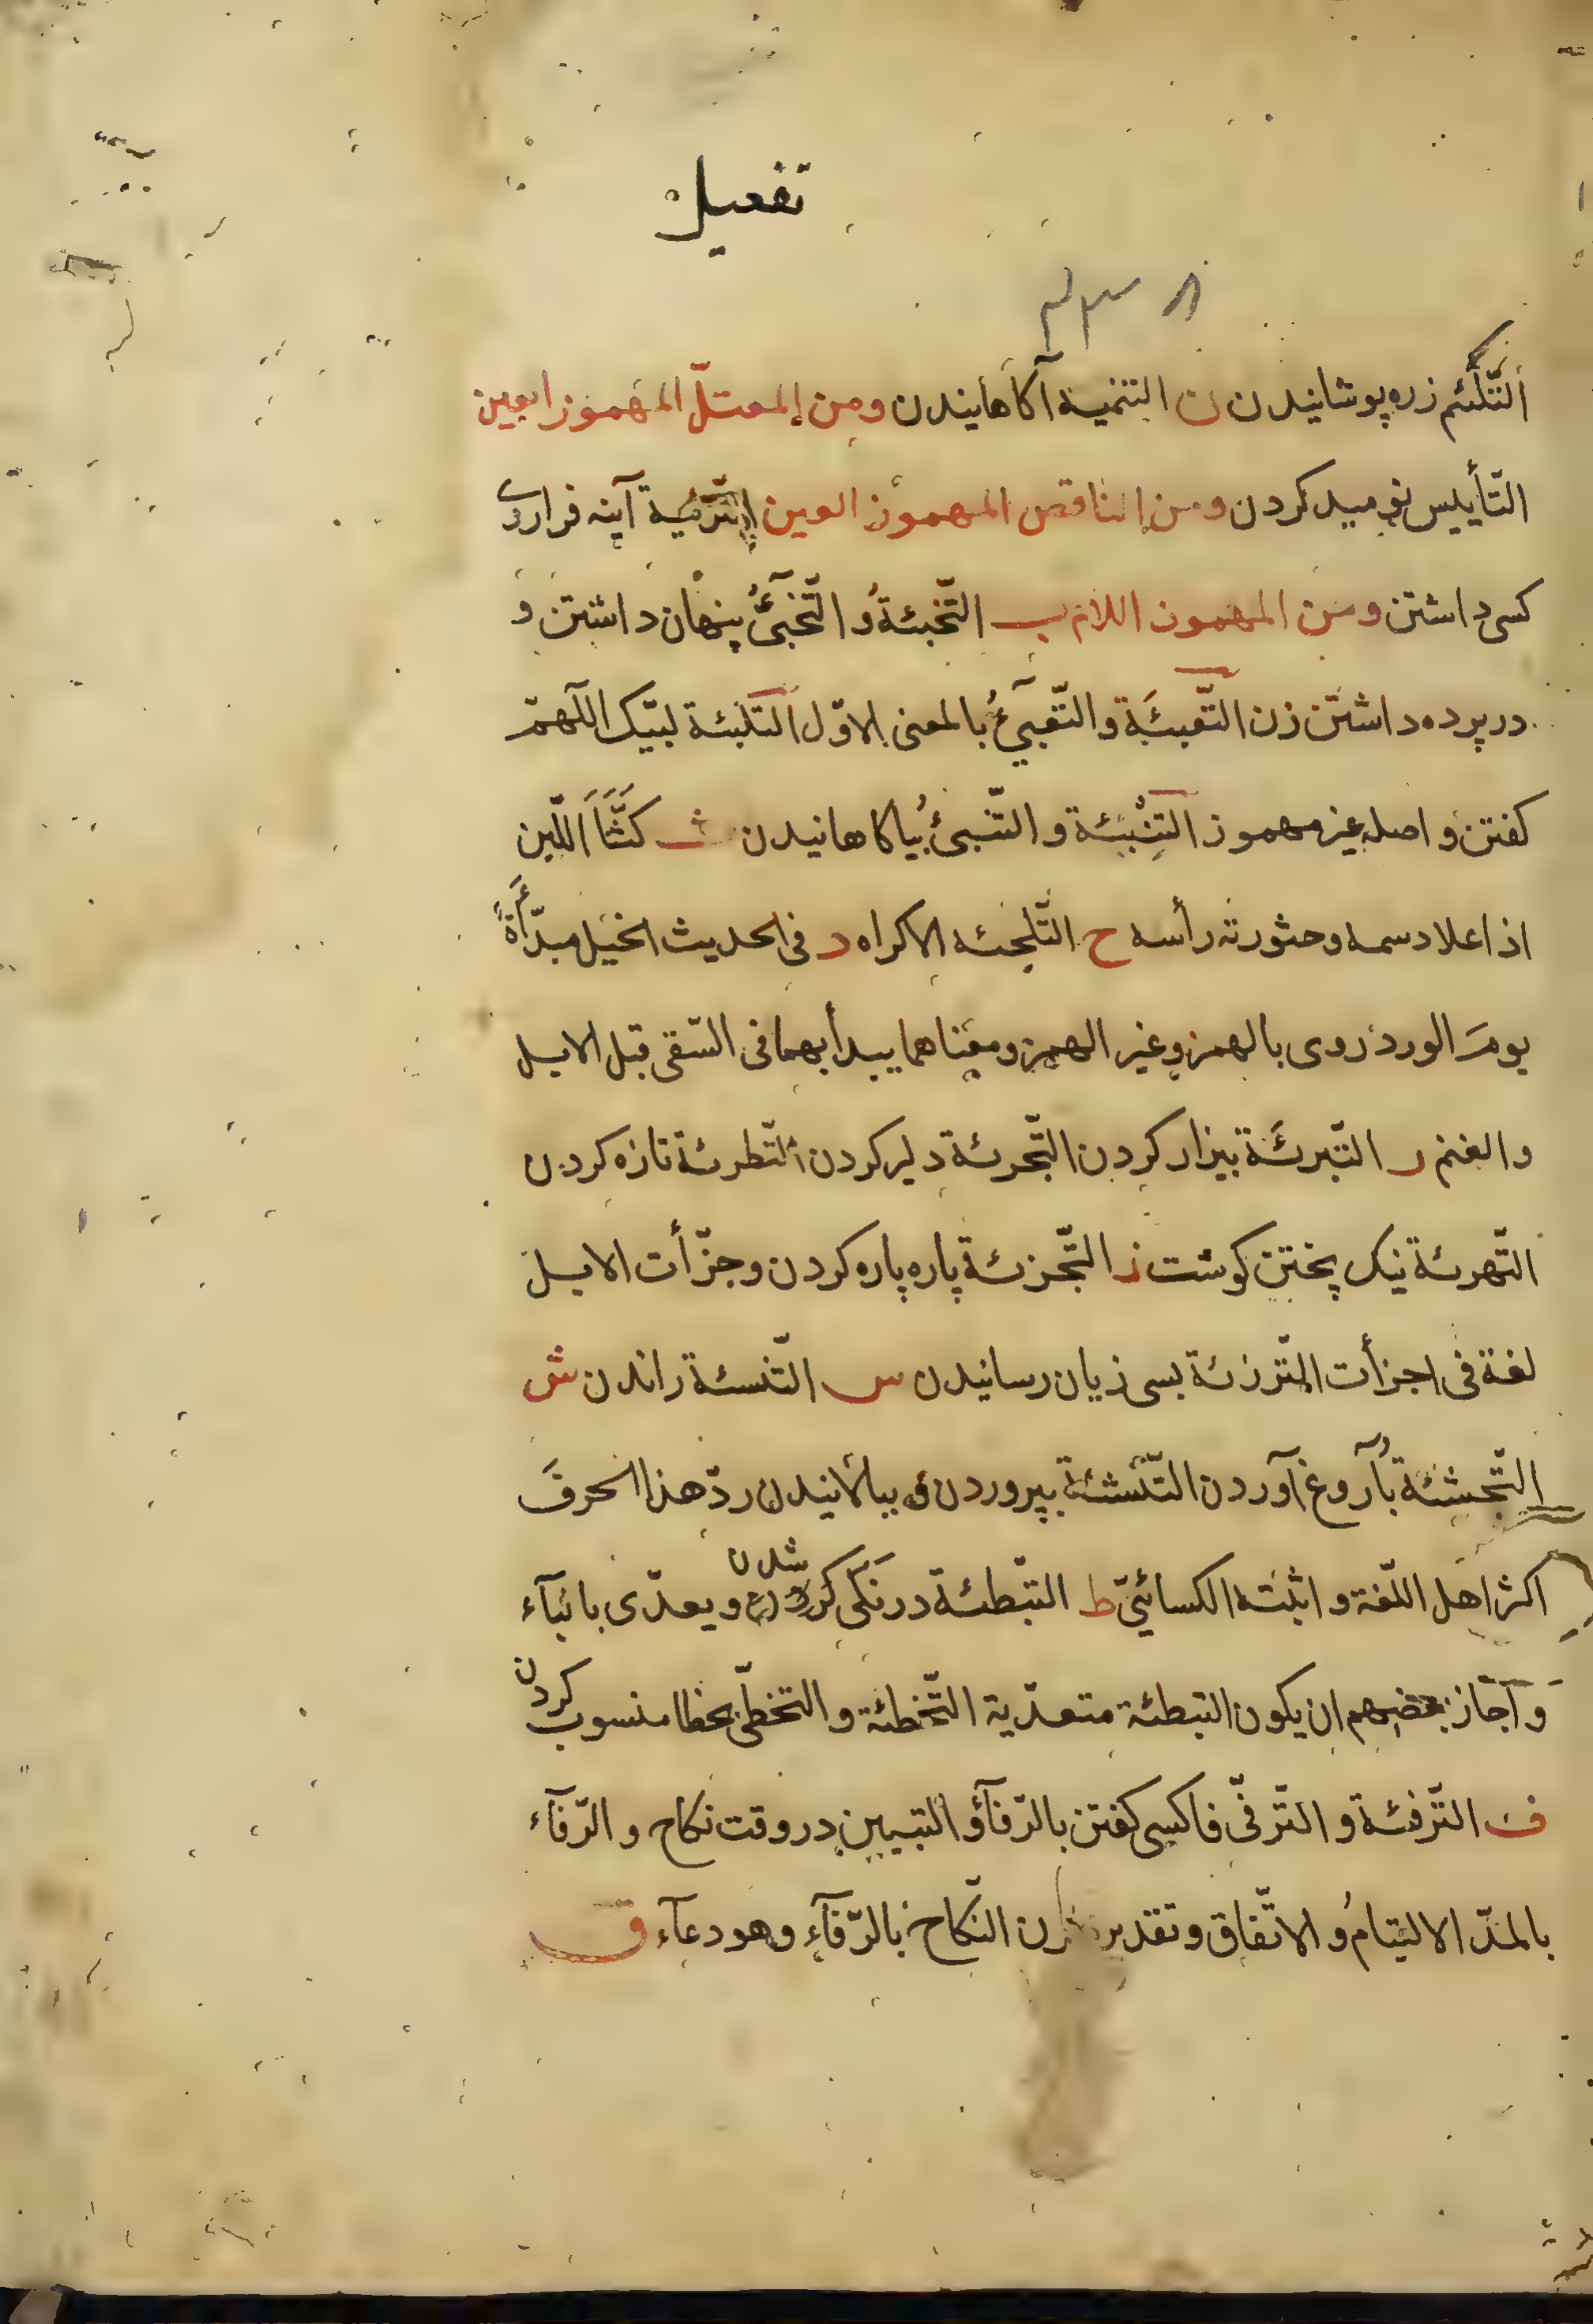 تفعيل
التّلئم زره پوشانيدن ن التنمية آكاهانيدن ومن المعتلّ المهموز العين
التّأييس نوميد كردن ومن الناقص المهموز العين التّرئية آينه فراروى
كسى داشتن ومن المهموز اللام ب التّخبئةُ والتّخبىُٔ پنهان داشتن و
در پرده داشتن زن التّعبئَة والتّعبىُٔ بالمعنى الاوّل التّلبئة لبّيك اللّهمّ
كفتن واصله غير مهموز التنْبئة والتّنبىُٔ بياكاهانيدن ث كثّأَ اللّبن
اذا علا دسمه وخثورته رأسه ح التّلجئه الاكراه د فى الحديث الخيل مبدّأَةً
يومَ الورد روى بالهمز وغير الهمز ومعناهما يبدأ بهما فى السّقى قبل الابل
والغنم ر التّبرئَة بيزار كردن التّجرئة دلير كردن التّطرئة تازه كردن
التّهرئة نيك پختن كوشت ز التّجزئة پاره پاره كردن وجزّأت الابل
لغة فى اجزأت التّرزئة بسى زيان رسانيدن س التّنسئة راندن ش
التّجشئة بآروغ آوردن التّنشئة بپروردن و ببالانيدن ردّ هذا الحرفَ
اكثر اهل اللّغة واثبته الكسائيّ ط التّبطئة درنكى كردن شدن ويعدّى بالبآء
وآجاز بعضهم ان يكون التبطئة متعدّية التّخطئة والتخطّى بخطا منسوب كردن
ف التّرفئة والتّرفّى فاكسى كفتن بالرّفآؤ التبيين در وقت نكاح والرّفآء
بالمدّ الالتيامُ والاتّفاق وتقديره النّكاح بالرّفآءِ وهو دعآء ق